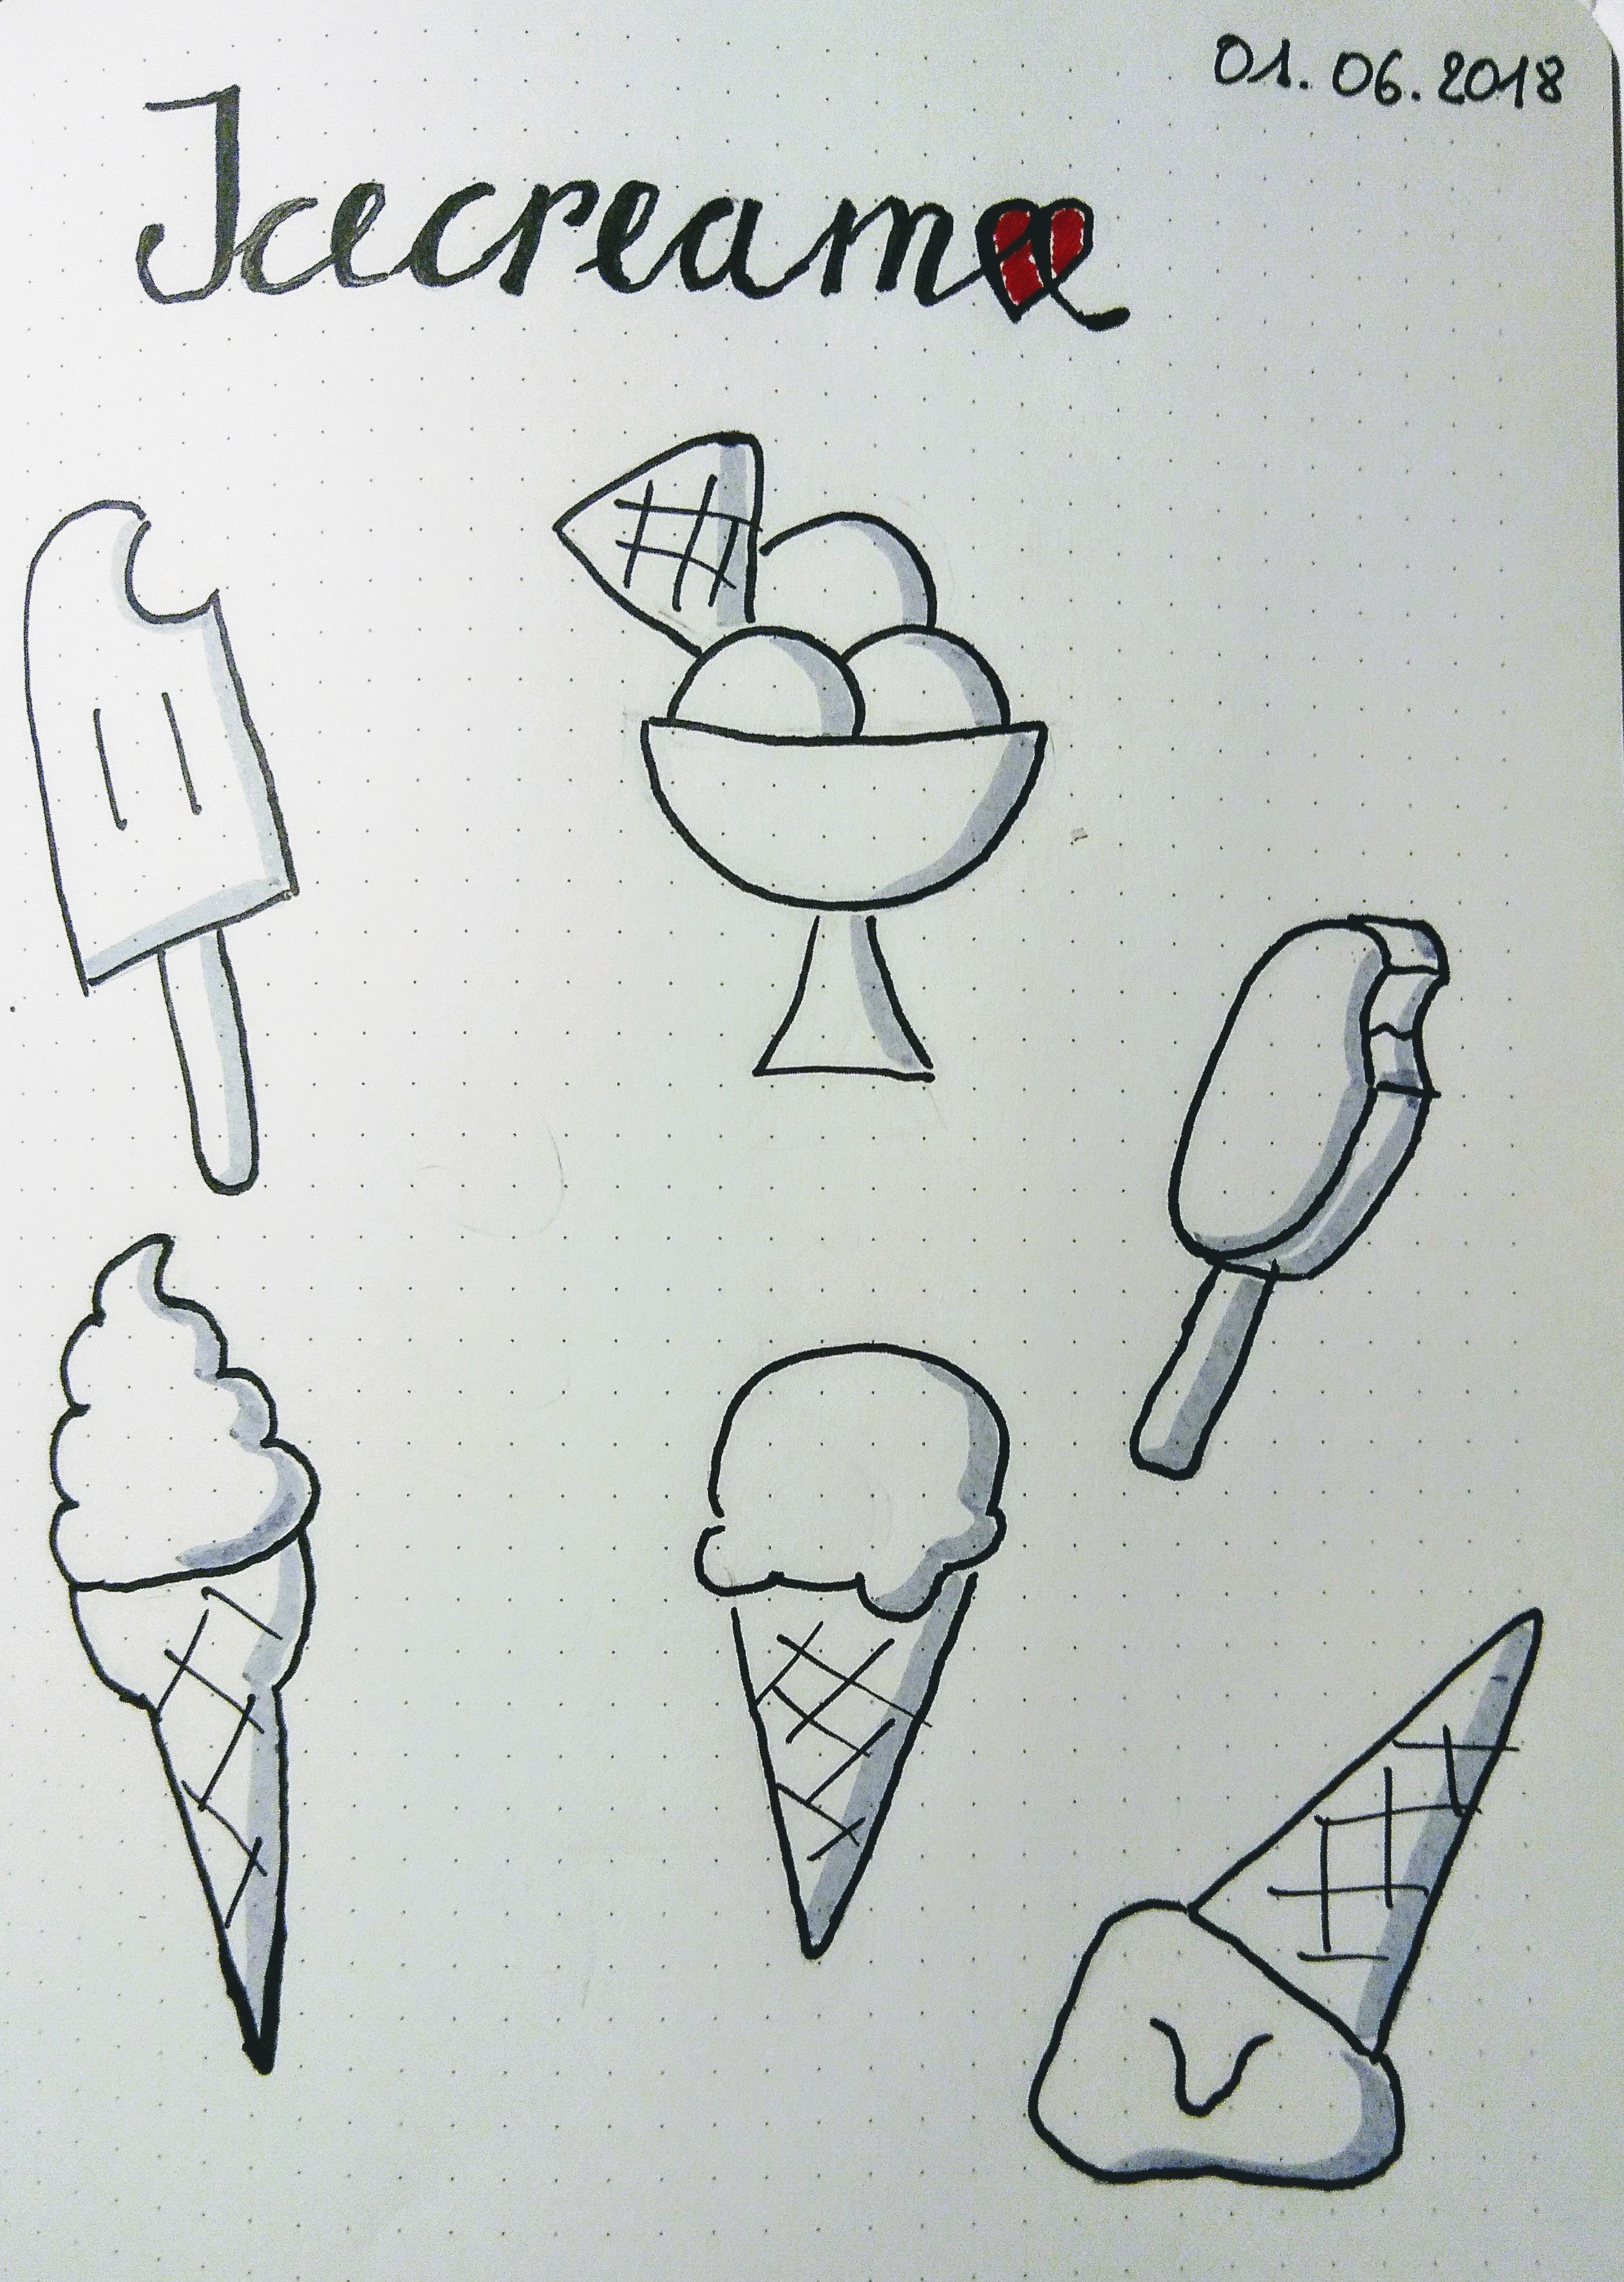 01.06.2018
Icecream